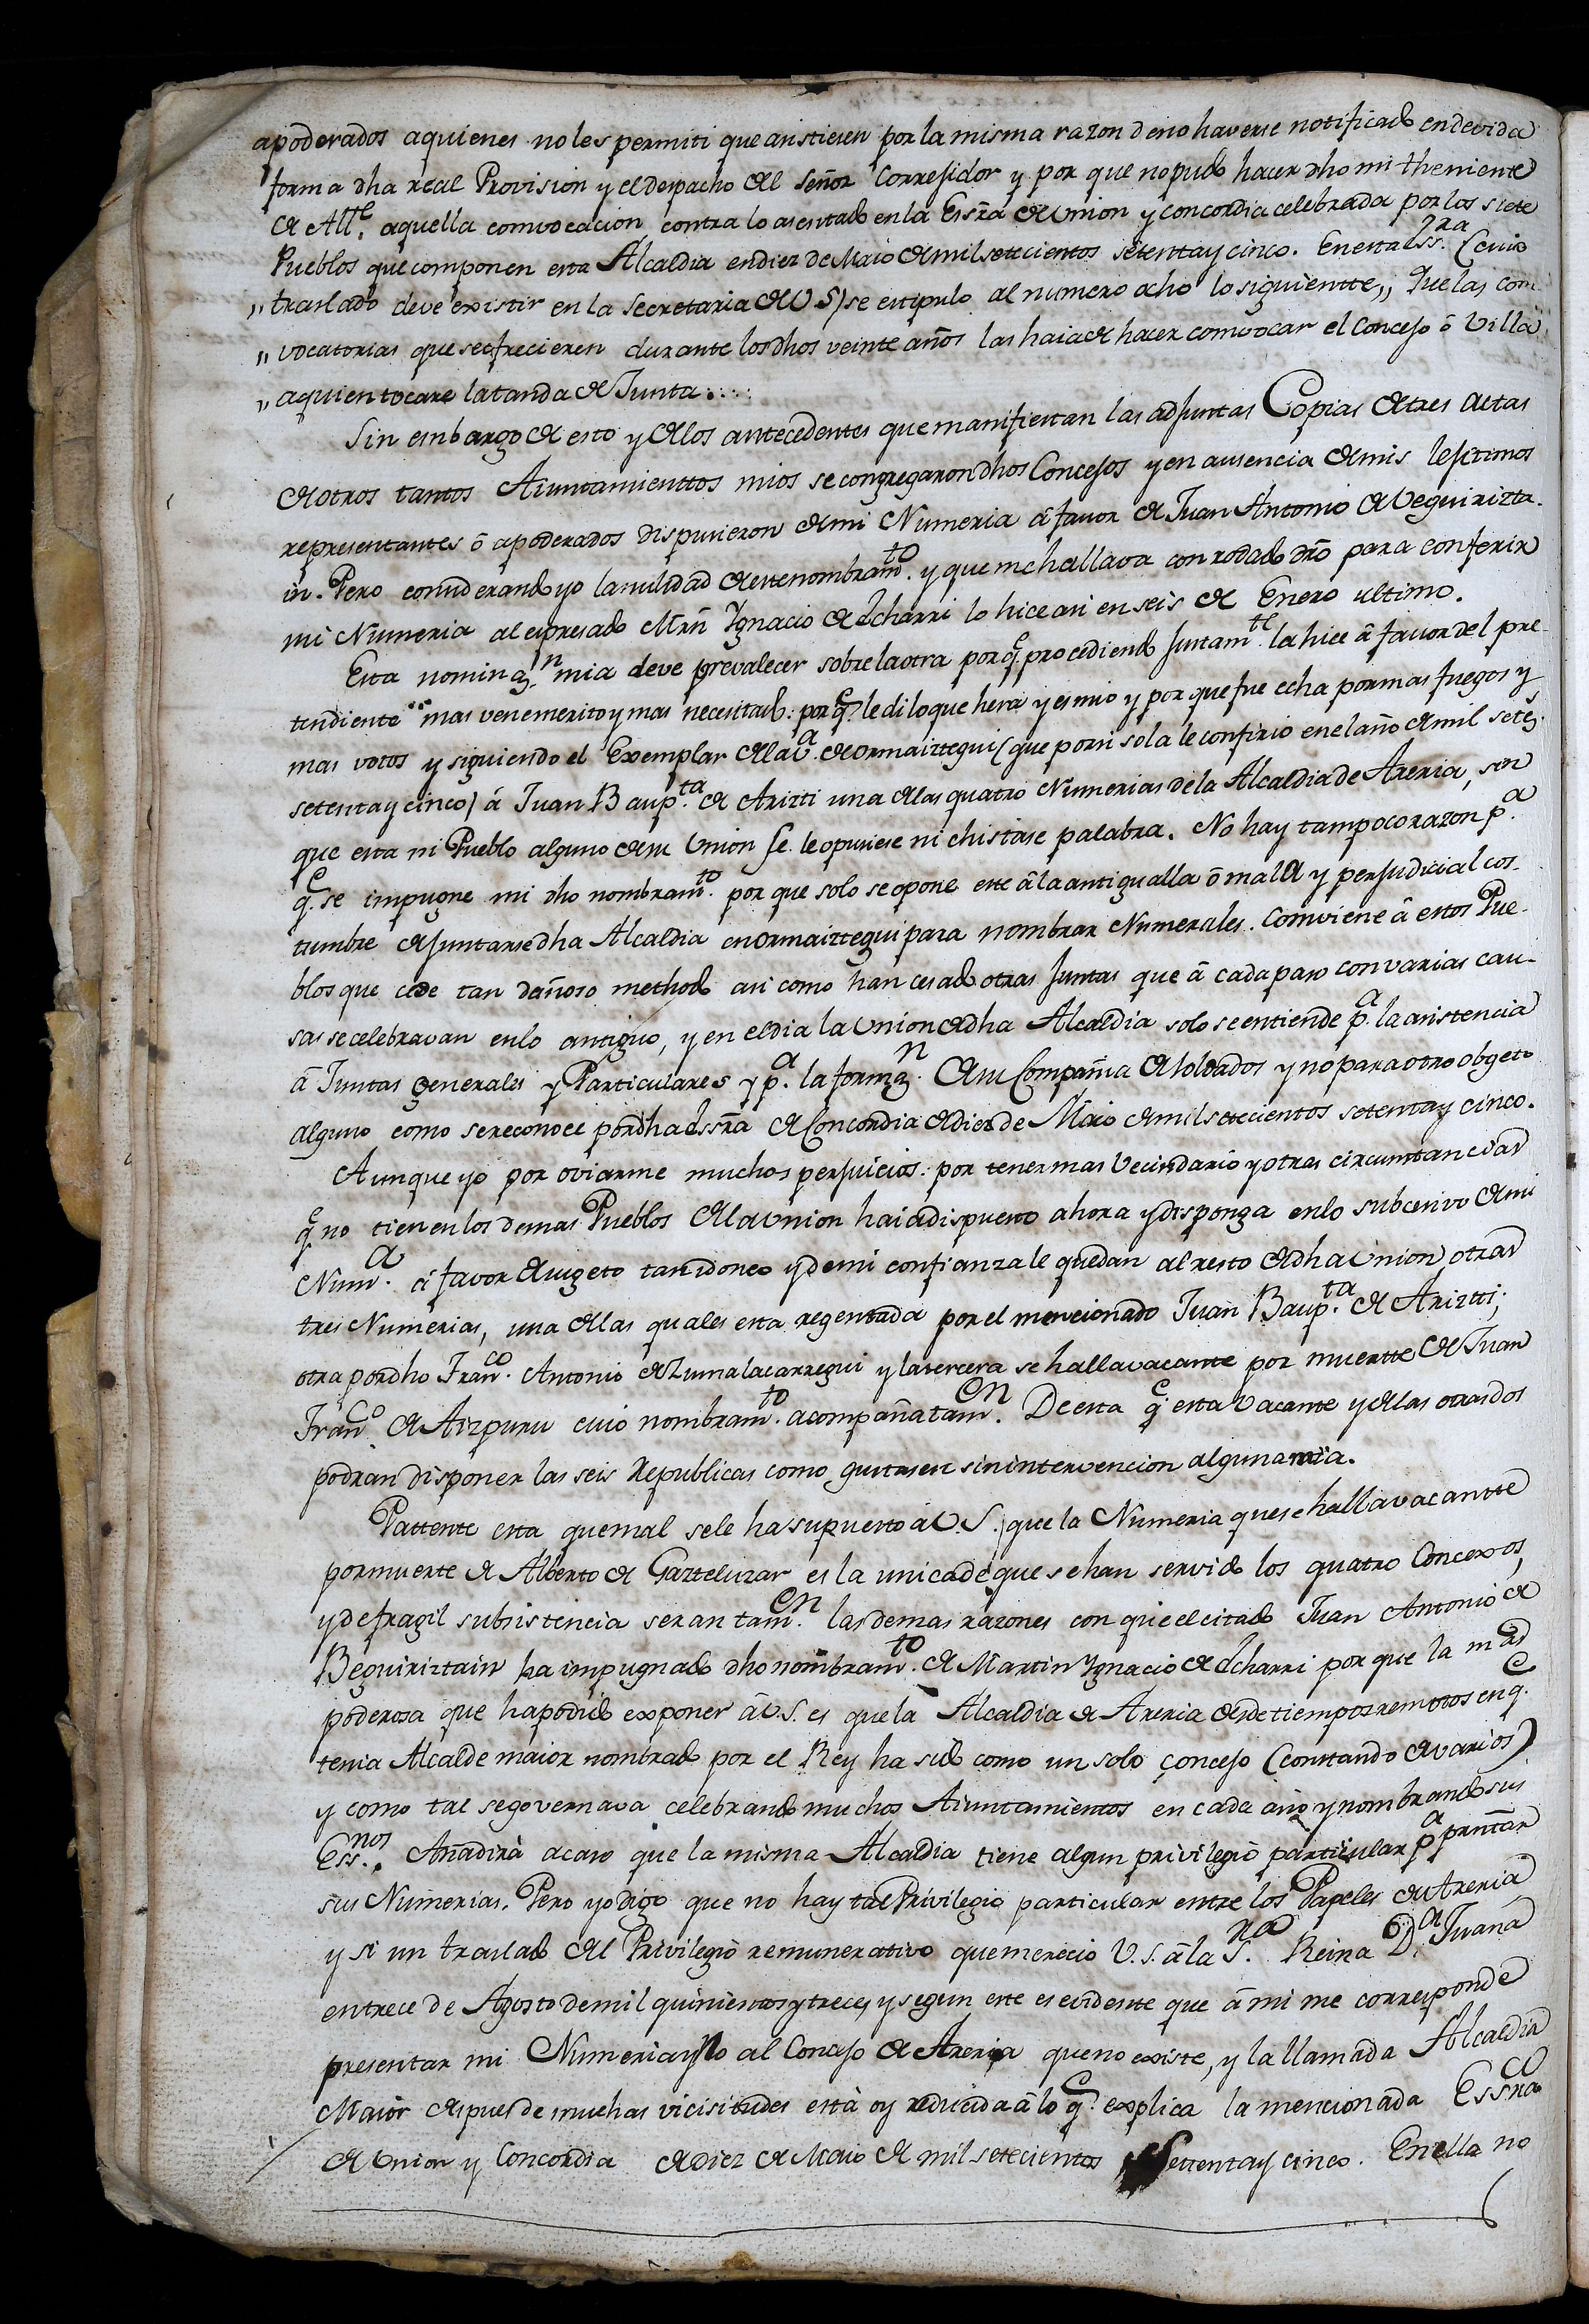 apoderados aquienes no les permiti que asistiesen por la misma razon de no haverse notificado en devida
forma dha real Provision y el despacho del Señor Corregidor y por que no pudo hacer dho mi theniente
de Alle. aquella convocacion contra lo asentado en la Essra de Union y concordia celebrada por los siete
Pueblos que componen esta Alcaldia en diez de Maio de mil setecientos setenta y cinco. En esta Essra. (cuio
„ traslado deve existir en la Secretaria de V.S) se estipulo al numero ocho lo siguientte „ Que las con-
„ vocatorias que se ofrecieren durante los dhos veinte años las haia de hacer comvocar el Concejo ô Villa
„ aquien tocare la tanda de Junta....
Sin embargo de esto y de los antecedentes que manifiestan las adjuntas Copias de tres Actas
de otros tantos Aiuntamienttos mios se congregaron dhos Concejos y en ausencia de mis lejitimos
representantes ô apoderados dispusieron de mi Numeria â favor de Juan Antonio de Veguirizta-
in. Pero considerando yo la nulidad de este nombramto. y que me hallava con rodado dro para conferir
mi Numeria al espresado Mrn Ygnacio de Echarri lo hice asi en seis de Enero ultimo.
Esta nominazn. mia deve prevalecer sobre la otra por qe. procediendo juntamte. la hice â favor del pre-
tendiente mas venemerito y mas necesitado: por qe. le di lo que hera y es mio y por que fue echa por mas fuegos y
mas votos y siguiendo el Exemplar de la Va. de Ormaiztegui (que por si sola le confirio en el año de mil setezs.
setenta y cinco) á Juan Baupta. de Arizti una de las quatro Numerias de la Alcaldia de Areria, sin
que esta ni Pueblo alguno de su Union se le opusiese ni chistase palabra. No hay tampoco razon pa.
qe. se impugne mi dho nombramto. por que solo se opone este â la antigualla ô mala y perjudicial cos-
tumbre de juntarse dha Alcaldia en Ormaiztegui para nombrar Numerales. Comviene â estos Pue-
blos que cede tan dañoso methodo asi como han cesado otras Juntas que â cada paso con varias cau-
sas se celebravan en lo antiguo, y en el dia la Union de dha Alcaldia solo se entiende pa. la asistencia
â Juntas Generales y Particulares y pa. la formazn. de su Compañia de soldados y no para otro obgeto
alguno como se reconoce por dha Essra de Concordia de diez de Maio de mil setecientos setenta y cinco.
Aunque yo por oviarme muchos perjuicios: por tener mas Vecindario y otras circumtancias
qe. no tienen los demas Pueblos de la Union haia dispuesto ahora y disponga en lo subcesivo de mi
Numa. â favor de sugeto tan idoneo y de mi confianza le quedan al resto de dha Union otras
tres Numerias, una de las quales esta regentada por el mencionado Juan Baupta. de Ariztti;
otra por dho Franco. Antonio de Zumalacarregui y la tercera se halla vacante por muertte de Juan
Franco. de Aizpuru cuio nombramto. acompaña tamen. De esta qe. esta vacante y de las otras dos
podran disponer las seis Republicas como gustasen sin intervencion alguna mia.
Pattente esta que mal se le ha supuesto á V.S. que la Numeria que se halla vacantte
por muerte de Alberto de Gazteluzar es la unica de que se han servido los quatro Concexos,
y de fragil subsistencia seran tamen. las demas razones con que el citado Juan Antonio de
Beguiriztain ha impugnado dho nombramto. de Martin Ygnacio de Echarri por que la mas
poderosa que ha podido exponer â V.S. es que la Alcaldia de Areria desde tiempos remotos en qe.
tenia Alcalde maior nombrado por el Rey ha sido como un solo çoncejo (constando de varios)
y como tal se governava celebrando muchos Aiuntamientos en cada año y nombrando sus
Essnos. Añadirà acaso que la misma Alcaldia tiene algun privilegio particular pa prntar
sus Numerias. Pero yo digo que no hay tal Privilegio particular entre los Papeles de Areria
y si un traslado del Privilegio remunerativo que merecio V.S. â la Sra. Reina Da. Juana
en trece de Agosto de mil quinientos y trece, y segun este es evidente que â mi me corresponde
presentar mi Numeria y No al Concejo de Areria que no existe, y la llamada Alcaldia
Maior despues de muchas vicisitudes està oy reducida â lo qe. explica la mencionada Essra
de Union y Concordia de diez de Maio de mil setecientos Settenta y cinco. En ella no